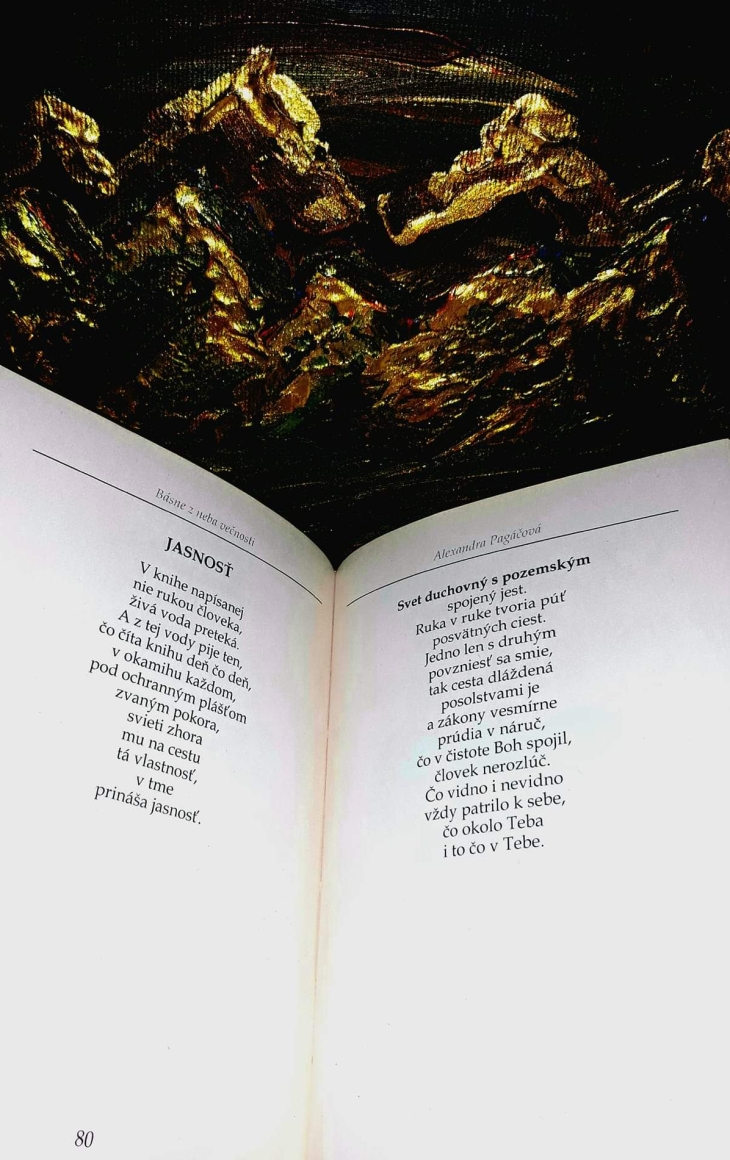 Básne z neba večnosti
JASNOSŤ
V knihe napísanej
nie rukou človeka,
živá voda preteká.
A z tej vody pije ten,
čo číta knihu deň čo deň,
v okamihu každom,
pod ochranným plášťom
zvaným pokora,
svieti zhora
mu na cestu
tá vlastnosť,
v tme
prináša jasnosť.
80
Alexandra Pagáčová
Svet duchovný s pozemským
spojený jest.
Ruka v ruke tvoria púť
posvätných ciest.
Jedno len s druhým
povzniesť sa smie,
tak cesta dláždená
posolstvami je
a zákony vesmírne
prúdia v náruč,
čo v čistote Boh spojil,
človek nerozlúč.
Čo vidno i nevidno
vždy patrilo k sebe,
čo okolo Teba
i to čo v Tebe.